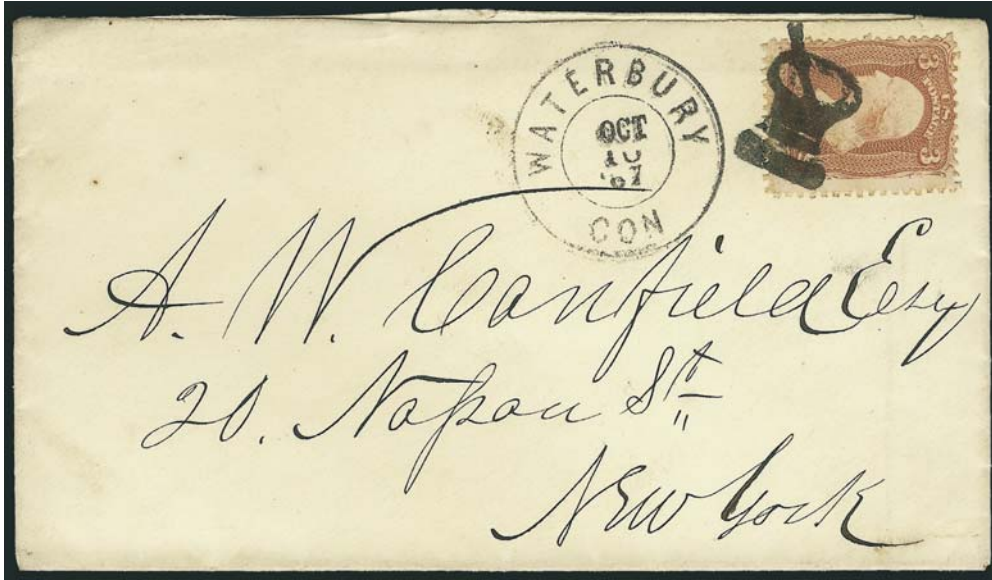 WATERBURY
OCT
10
'67
CON
3 U.S. POSTAGE 3
A. W. Canfield Esq
20. Nassau St
New York